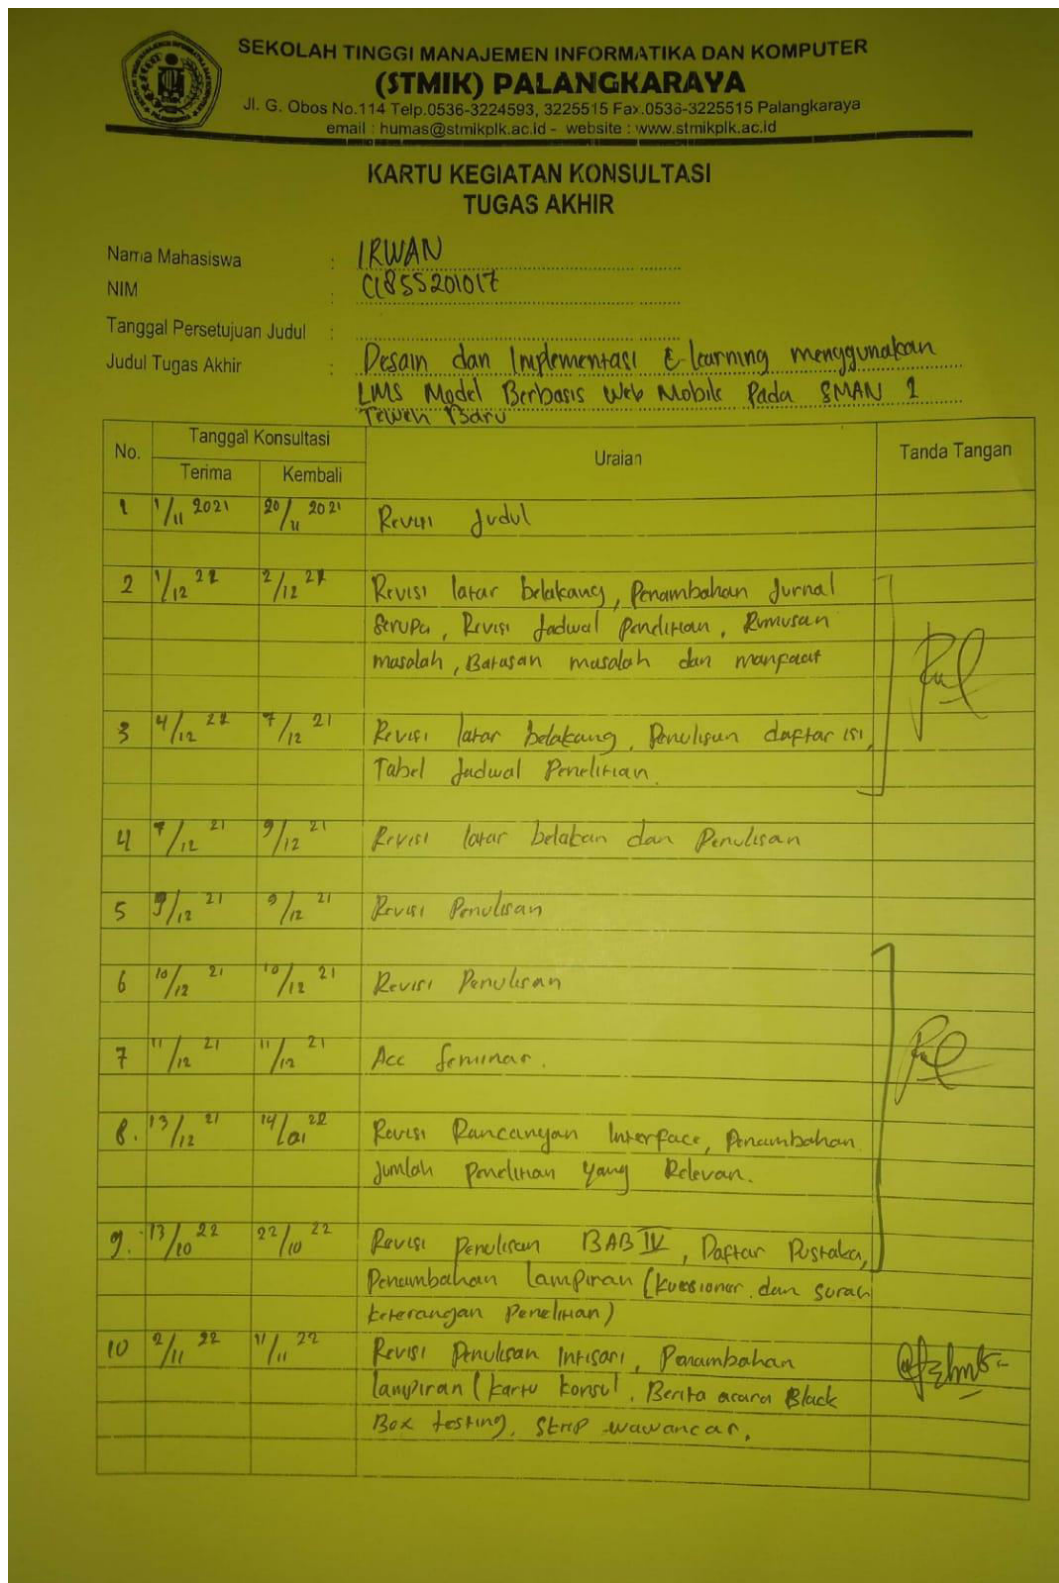 SEKOLAH TINGGI MANAJEMEN INFORMATIKA DAN KOMPUTER
(STMIK) PALANGKARAYA
Jl. G. Obos No.114 Telp.0536-3224593, 3225515 Fax.0536-3225515 Palangkaraya
email : humas@stmikplk.ac.id - website : www.stmikplk.ac.id
KARTU KEGIATAN KONSULTASI
TUGAS AKHIR
Nama Mahasiswa : IRWAN
NIM : C1855201017
Tanggal Persetujuan Judul :
Judul Tugas Akhir : Desain dan Implementasi E-learning menggunakan
LMS Model Berbasis Web Mobile Pada SMAN 1
Teweh Baru
No. Tanggal Konsultasi Uraian Tanda Tangan
Terima Kembali
1 1/11 2021 20/11 2021 Revisi Judul
2 1/12 21 2/12 21 Revisi latar belakang, Penambahan Jurnal
Serupa, Revisi Jadwal Penelitian, Rumusan
masalah, Batasan masalah dan manfaat
3 4/12 21 7/12 21 Revisi latar belakang, Penulisan daftar isi,
Tabel Jadwal Penelitian.
4 7/12 21 9/12 21 Revisi latar belakan dan Penulisan
5 9/12 21 9/12 21 Revisi Penulisan
6 10/12 21 10/12 21 Revisi Penulisan
7 11/12 21 11/12 21 Acc Seminar.
8. 13/12 21 14/01 22 Revisi Rancangan Interface, Penambahan
Jumlah Penelitian yang Relevan.
9. 13/10 22 22/10 22 Revisi Penulisan BAB IV, Daftar Pustaka,
Penambahan Lampiran (Kuesioner dan surat
keterangan Penelitian)
10 2/11 22 11/11 22 Revisi Penulisan Intisari, Penambahan
lampiran (kartu konsul, Berita acara Black
Box testing, wawancar.